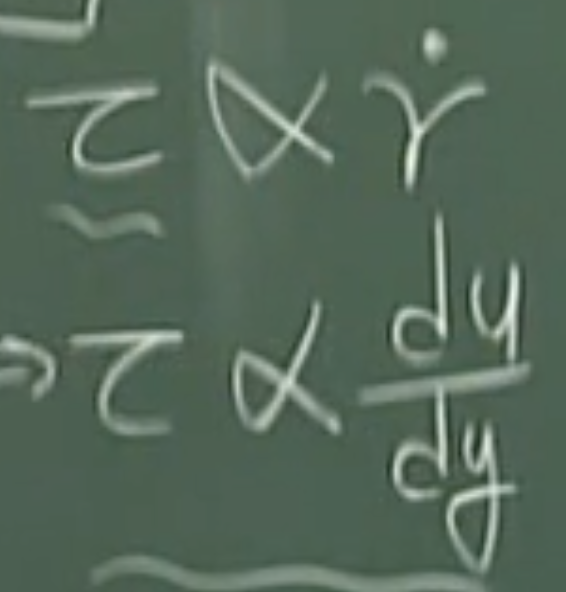 τ ∝ γ̇
⇒ τ ∝ du/dy